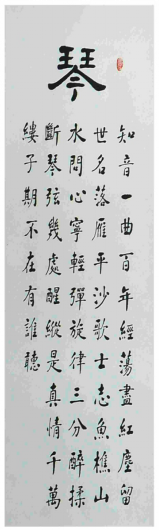 琴
知音一曲百年經蕩盡紅塵留
世名落雁平沙歌士志魚樵山
水問心寧輕彈旋律三分醉揉
斷琴弦幾處醒縱是真情千萬
縷子期不在有誰聽